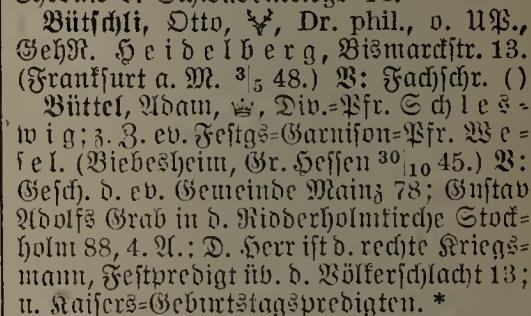 Bütschli, Otto, Dr. phil., o. UP.,
GehR. Heidelberg, Bismarckstr. 13.
(Frankfurt a. M. 3|5 48.) V: Fachschr. ()
Büttel, Adam, Div.=Pfr. Schles=
wig; z. Z. ev. Festgs=Garnison=Pfr. We=
sel. (Biebesheim, Gr. Hessen 30|10 45.) V:
Gesch. d. ev. Gemeinde Mainz 78; Gustav
Adolfs Grab in d. Ridderholmkirche Stock=
holm 88, 4. A.; D. Herr ist d. rechte Kriegs=
mann, Festpredigt üb. d. Völkerschlacht 13;
u. Kaisers=Geburtstagspredigten. *